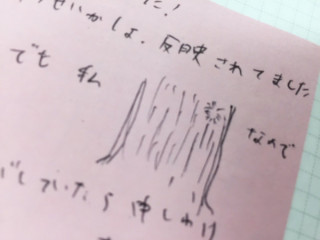 た!
せいかしょ、反映されてました
でも 私 なので
していたら申しわけ